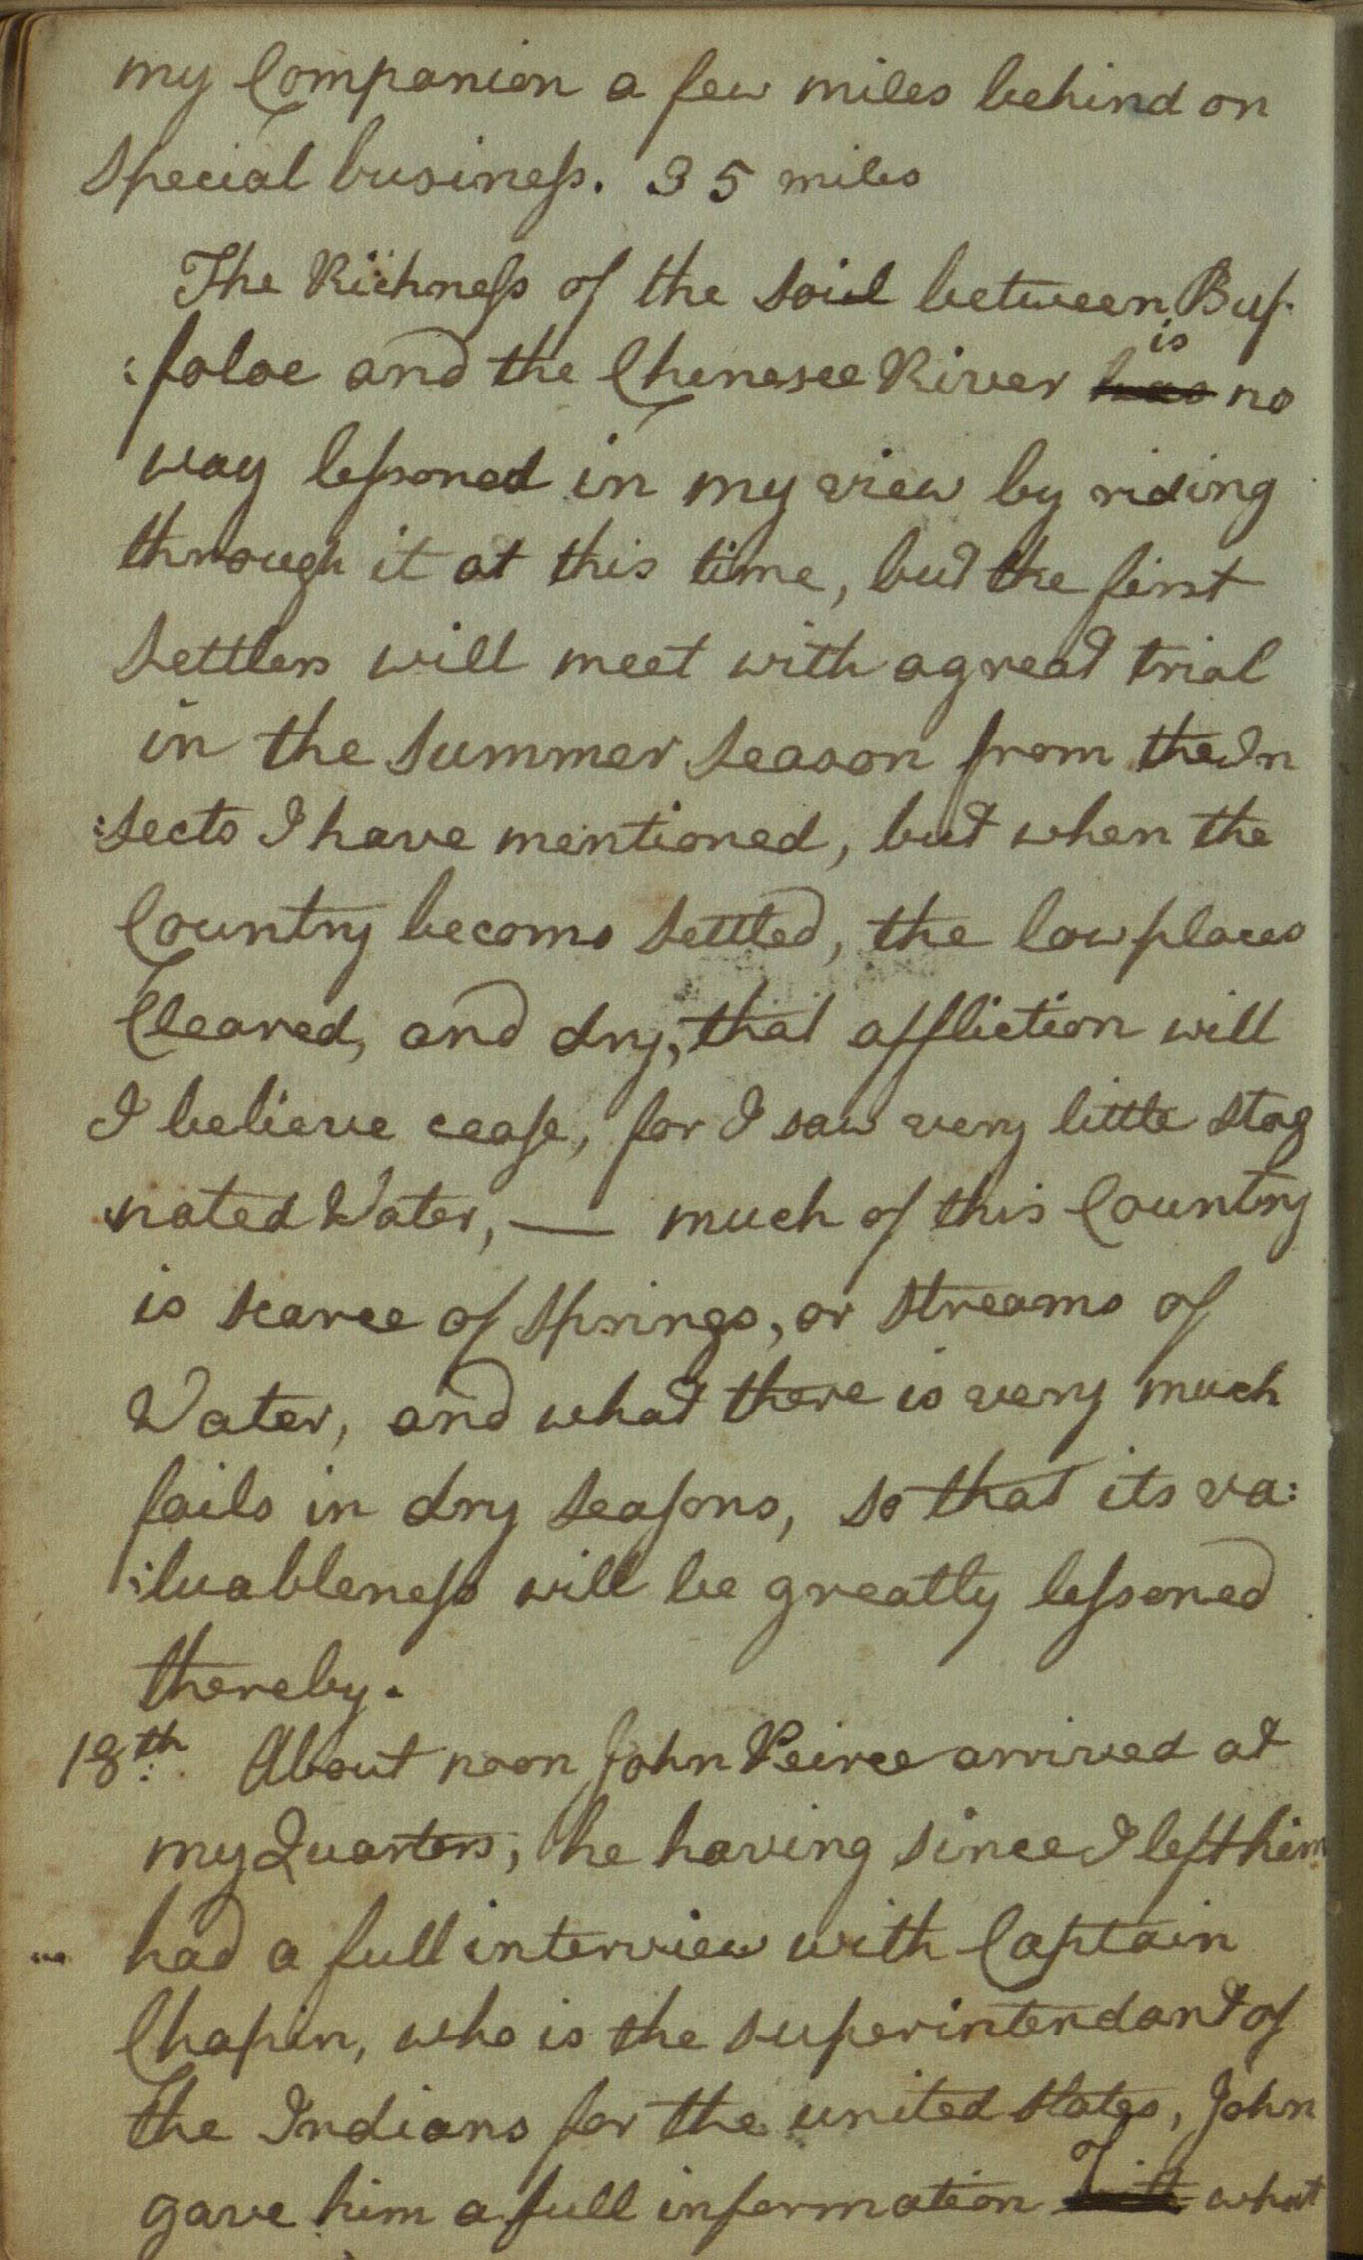 my Companion a few miles behind on
special business. 35 miles
The Richness of the soiul between Buf-
:faloe and the Chenesee River has is no
way lessoned in my view by riding
through it at this time, but the first
settlers will meet with a great trial
in the summer season from the In
:sects I have mentioned, but when the
Country becoms settled, the low places
Cleared, and dry, that affliction will
I believe cease, for I saw very little stag
nated Water, — much of this Country
is scarce of springs, or streams of
Water, and what there is very much
fails in dry seasons, so that its va:
:luableness will be greatly lessoned
thereby.
18th. About noon John Peirce arrived at
my Quarters, he having since I left him
had a full interview with Captain
Chapin, who is the superintendant of
the Indians for the united states, John
gave him a full information what